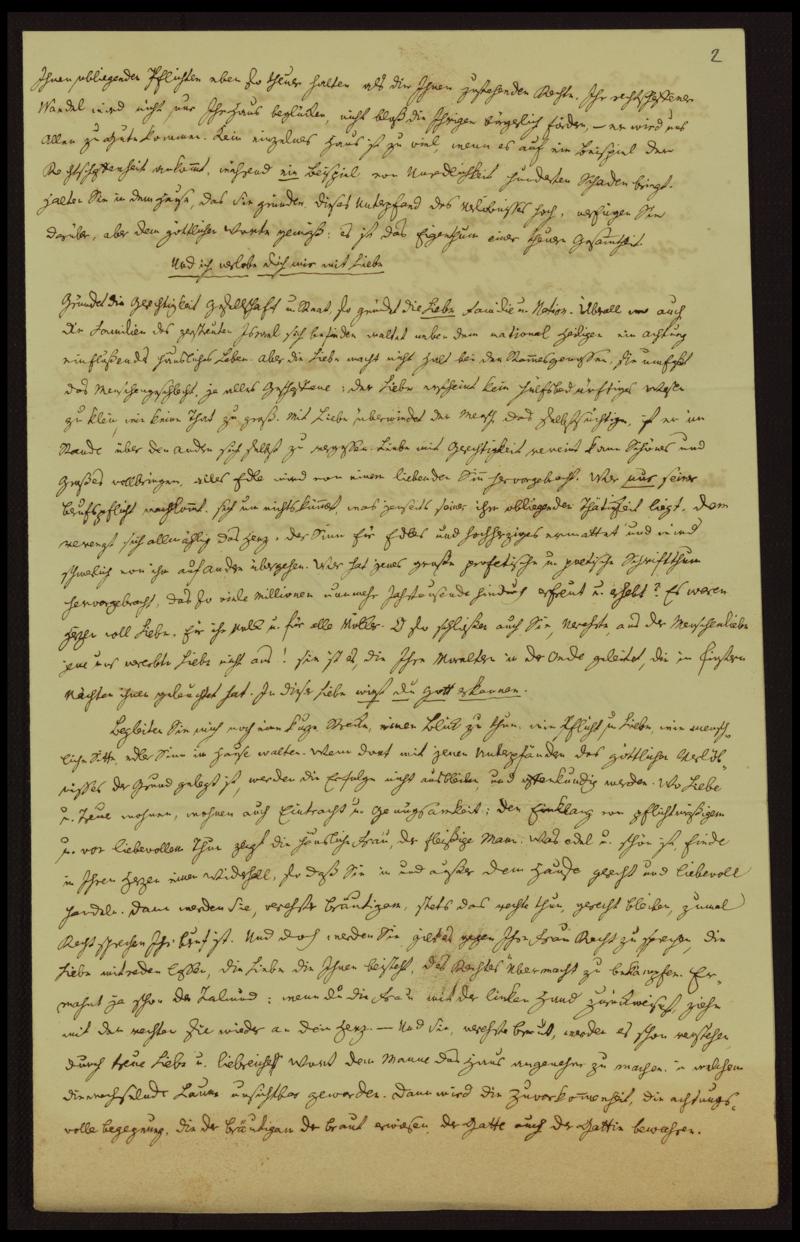 2
Ihnen obliegenden Pflichten eben so theuer halten als die Ihnen zustehenden Rechte. Ihr rechtschaffener
Wandel wird nicht nur Ihr Haus beglücken, nicht bloß die Ihrigen bürgerlich fördern, — er wird uns
Allen zu Gute kommen. Kein einzelnes Haus ist zu viel, wenn es auf ein Beispiel der
Rechtschaffenheit ankommt, während ein Beispiel von Unredlichkeit Hunderten Schaden bringt.
Halten Sie in dem Hause, das Sie gründen, dieses Unterpfand des Verlöbnisses hoch, verfügen Sie
darüber, aber dem göttlichen Worte gemäß: es ist das Eigenthum einer theuern Gesammtheit.
Und ich verlobe dich mir mit Liebe
Gründet die Gerechtigkeit Gesellschaft u. Staat, so gründet die Liebe Familie u. Nation. Überall wo auch
die Familien des zerstreuten Israel sich befinden waltet neben dem national Heiligen ein Achtung
einflößendes häusliches Leben. Aber die Liebe macht nicht Halt bei den Stammesgenossen, sie umfaßt
das Menschengeschlecht, ja alles Geschaffene: der Liebe erscheint kein hülfsbedürftiges Wesen
zu klein, wie keine That zu groß. Mit Liebe überwindet der Mensch das Selbstsüchtige, ist er im
Stande über den Andern sich selbst zu vergessen. Liebe mit Gerechtigkeit vereint kann Schönes und
Großes vollbringen, alles Edle wird von einem liebenden Sinn hervorgebracht. Wer nur seiner
Berufspflicht nachkommt, sich um nichts kümmert, was jenseits seiner ihm obliegenden Thätigkeit liegt, dem
verengt sich allmählig das Herz, der Sinn für Edles und Hochherziges ermattet und wird
schwerlich von ihm auf Andere übergehen. Wer hat jenes große profetische u. poetische Schriftthum
hervorgebracht, das so viele Millionen nunmehr Jahrtausende hindurch erfreut u. erhebt? Es waren
Herzen voll Liebe, für ihr Volk u. für alle Völker. O so schließen auch Sie, Verehrte, aus der Menschenliebe
jene uns vererbte Liebe nicht aus! sie ist es, die Ihre Voreltern in der Oede geleitet, die in finstern
Nächten ihnen geleuchtet hat. In dieser Liebe wirst du Gott erkennen.
Begleiten Sie mich noch eine kurze Strecke, einen Blick zu thun, wie Pflicht u. Liebe, wie mensch-
liche Sitte, edler Sinn im Hause walten. Wenn dort mit jenen Unterpfändern des göttlichen Verlöb-
nisses der Grund gelegt ist, werden die Erfolge nicht ausbleiben und offenkundig werden. Wo Liebe
u. Treue wohnen, wohnen auch Eintracht u. Genügsamkeit; den Einklang von pflichtmäßigem
u. von liebevollem Thun zeigt die häusliche Frau, der fleißige Mann. Was edel u. schön ist, finde
in Ihren Herzen einen Widerhall, so daß Sie in und außer dem Hause gerecht und liebevoll
handeln. Dann werden Sie, verehrter Bräutigam, stets das Rechte thun, gerecht bleiben, zumal
Recht sprechen Ihr Beruf ist. Und doch werden Sie, gilt es gegen Ihre Frau Recht zu sprechen, die
Liebe mitreden lassen, die Liebe die Ihnen beisteht, des Rechtes Übermacht zu bekämpfen. Er-
mahnt ja schon der Talmud: wenn du die Frau mit der linken Hand zurückweisest, ziehe
mit der rechten sie wieder an dein Herz. — Und Sie, verehrte Braut, werden es schon verstehen,
durch treue Liebe u. liebreiches Wort dem Manne das Haus angenehm zu machen, in welchem
die wechselnde Laune unsichtbar geworden. Dann wird die Zuvorkommenheit, die achtungs-
volle Begegnung, die der Bräutigam der Braut erwiesen, der Gatte auch der Gattin bewahren.